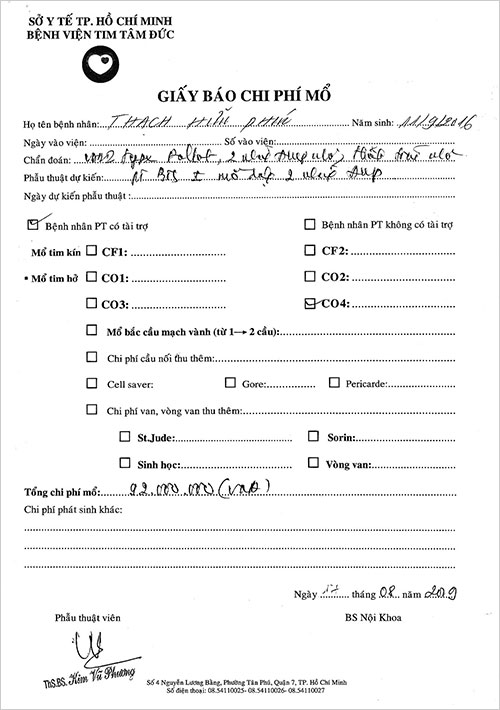 SỞ Y TẾ TP. HỒ CHÍ MINH
BỆNH VIỆN TIM TÂM ĐỨC
GIẤY BÁO CHI PHÍ MỔ
Họ tên bệnh nhân: THẠCH HỮU PHÚ Năm sinh: 11/9/2016
Ngày vào viện: Số vào viện:
Chẩn đoán: type Fallot, 2
Phẫu thuật dự kiến: PT BTS ± mở 2
Ngày dự kiến phẫu thuật :
Bệnh nhân PT có tài trợ Bệnh nhân PT không có tài trợ
Mổ tim kín CF1: CF2:
▪ Mổ tim hở CO1: CO2:
CO3: CO4:
Mổ bắc cầu mạch vành (từ 1→ 2 cầu):
Chi phí cầu nối thu thêm:
Cell saver: Gore: Pericarde:
Chi phí van, vòng van thu thêm:
St.Jude: Sorin:
Sinh học: Vòng van:
Tổng chi phí mổ: 92.000.000 (VNĐ)
Chi phí phát sinh khác:
Ngày 17 tháng 08 năm 2019
Phẫu thuật viên BS Nội Khoa
ThS.BS. Kim Vũ Phương
Số 4 Nguyễn Lương Bằng, Phường Tân Phú, Quận 7, TP. Hồ Chí Minh
Số điện thoại: 08.54110025- 08.54110026- 08.54110027